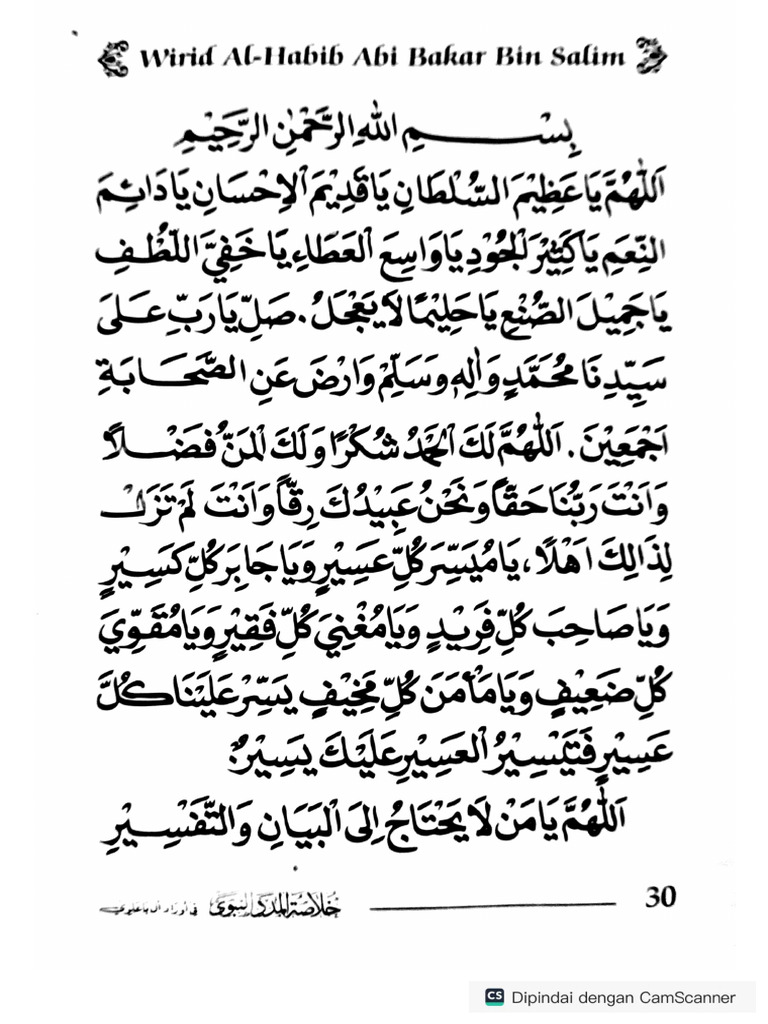 Wirid Al-Habib Abi Bakar Bin Salim
بِسْـــــــمِ اللهِ الرَّحْمٰنِ الرَّحِيْمِ
اَللّٰهُمَّ يَا عَظِيْمَ السُّلْطَانِ يَا قَدِيْمَ الْاِحْسَانِ يَا دَائِمَ
النِّعَمِ يَا كَثِيْرَ الْجُوْدِ يَا وَاسِعَ الْعَطَاءِ يَا خَفِيَّ اللُّطْفِ
يَا جَمِيْلَ الصُّنْعِ يَا حَلِيْمًا لَا يَعْجَلُ. صَلِّ يَا رَبِّ عَلَى
سَيِّدِنَا مُحَمَّدٍ وَاٰلِهِ وَسَلِّمْ وَارْضَ عَنِ الصَّحَابَةِ
اَجْمَعِيْنَ. اَللّٰهُمَّ لَكَ الْحَمْدُ شُكْرًا وَلَكَ الْمَنُّ فَضْلًا
وَاَنْتَ رَبُّنَا حَقًّا وَنَحْنُ عَبِيْدُكَ رِقًّا وَاَنْتَ لَمْ تَزَلْ
لِذَالِكَ اَهْلًا، يَا مُيَسِّرَ كُلِّ عَسِيْرٍ وَيَا جَابِرَ كُلِّ كَسِيْرٍ
وَيَا صَاحِبَ كُلِّ فَرِيْدٍ وَيَا مُغْنِيَ كُلِّ فَقِيْرٍ وَيَا مُقَوِّيَ
كُلِّ ضَعِيْفٍ وَيَا مَأْمَنَ كُلِّ مَخِيْفٍ يَسِّرْ عَلَيْنَا كُلَّ
عَسِيْرٍ فَتَيْسِيْرُ الْعَسِيْرِ عَلَيْكَ يَسِيْرٌ.
اَللّٰهُمَّ يَا مَنْ لَا يَحْتَاجُ اِلَى الْبَيَانِ وَالتَّفْسِيْرِ
خُلَاصَة الْمَدَد النَّبَوِي في أوراد آل باعلوي 30
CS Dipindai dengan CamScanner